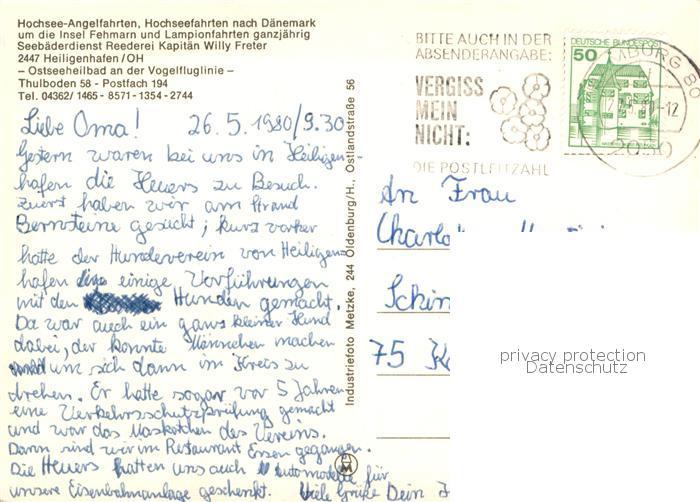 Hochsee-Angelfahrten, Hochseefahrten nach Dänemark
um die Insel Fehmarn und Lampionfahrten ganzjährig
Seebäderdienst Reederei Kapitän Willy Freter
2447 Heiligenhafen/OH
– Ostseeheilbad an der Vogelfluglinie –
Thulboden 58 - Postfach 194
Tel. 04362/1465 - 8571 - 1354 - 2744
Liebe Oma! 26.5.1980/9.30
Gestern waren bei uns in Heiligen-
hafen die Heuers zu Besuch.
Zuerst haben wir am Strand
Bernsteine gesucht; kurz vorher
hatte der Hundeverein von Heiligen-
hafen einige Vorführungen
mit den Hunden gemacht.
Da war auch ein ganz kleiner Hund
dabei, der konnte Männchen machen
um sich dann im Kreis zu
drehen. Er hatte sogar vor 5 Jahren
eine Verkehrsschutzprüfung gemacht
und war das Maskotchen des Vereins.
Dann sind wir im Restaurant Essen gegangen.
Die Heuers hatten uns auch Automodelle für
unsere Eisenbahnanlage geschenkt. Viele Grüße Dein
Industriefoto Metzke, 244 Oldenburg/H., Ostlandstraße 56
BITTE AUCH IN DER
ABSENDERANGABE:
VERGISS
MEIN
NICHT:
DIE POSTLEITZAHL
DEUTSCHE BUNDESPOST
50
MBURG 80
2050
An Frau
Charlo
Schin
75 K
privacy protection
Datenschutz